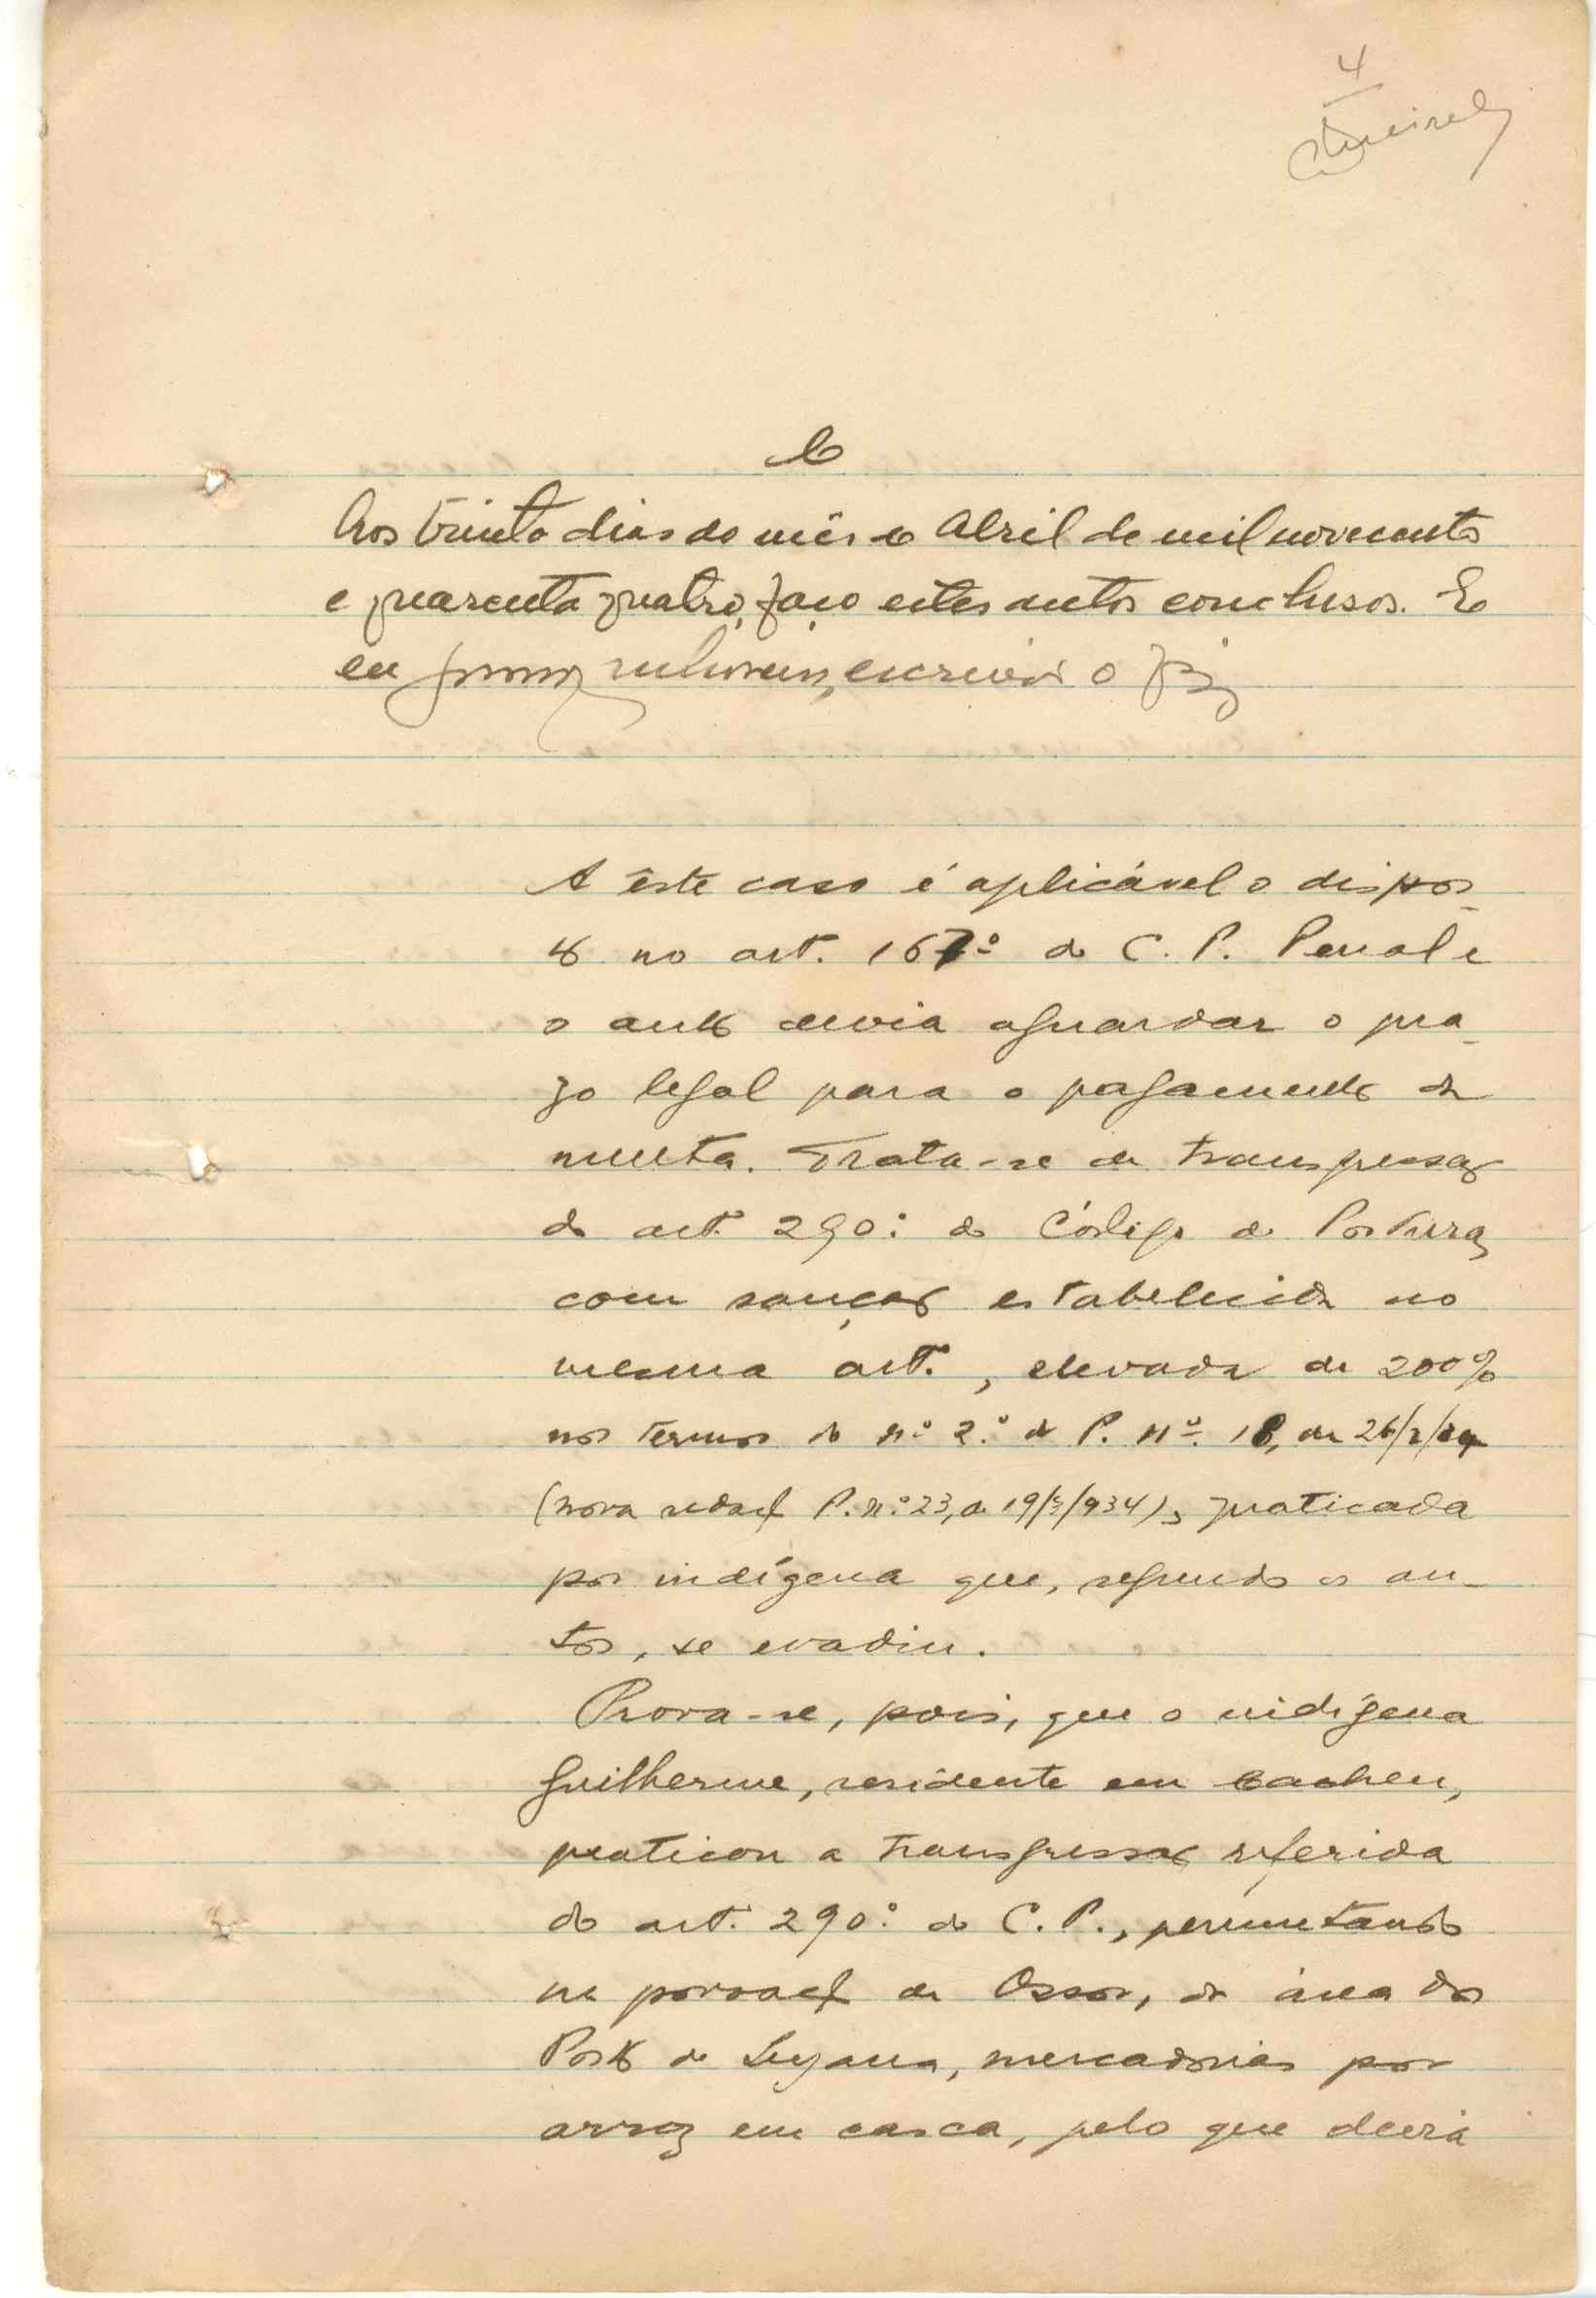 4
C
Aos trinta dias do mês de Abril de mil novecentos
e quarenta quatro, faço estes autos conclusos. E
eu escrivão o fiz
A êste caso é aplicável o dispos-
to no art. 167º do C. P. Penal e
o auto devia aguardar o pra-
zo legal para o pagamento da
multa. Trata-se de transgressão
do art. 290º do Código de Posturas
com sanção estabelecida no
mesmo art., elevada de 200%
nos termos do nº 2.º da P. nº 18, de 26/2/
(nova redacção P. nº 23, de 19/3/934), praticada
por indígena que, segundo os au-
tos, se evadiu.
Prova-se, pois, que o indígena
Guilherme, residente em Cacheu,
praticou a transgressão referida
do art. 290º do C. P., permutando
na povoação de Ossor, da área do
Posto de Suzana, mercadorias por
arroz em casca, pelo que devia